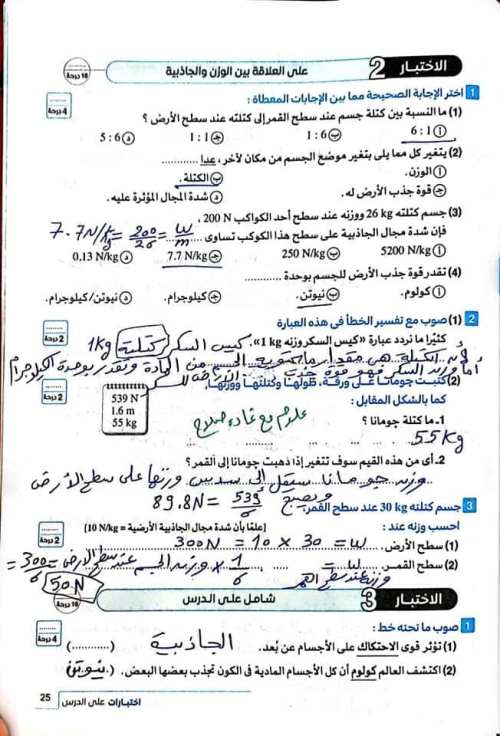 الاختبار 2 على العلاقة بين الوزن والجاذبية 10 درجة
1 اختر الإجابة الصحيحة مما بين الإجابات المعطاة :
4 درجة
(1) ما النسبة بين كتلة جسم عند سطح القمر إلى كتلته عند سطح الأرض ؟
أ 1 : 6 ب 6 : 1 ج 1 : 1 د 6 : 5
(2) يتغير كل مما يلى بتغير موضع الجسم من مكان لآخر، عدا ............
أ الوزن. ب الكتلة.
ج قوة جذب الأرض له. د شدة المجال المؤثرة عليه.
(3) جسم كتلته 26 kg ووزنه عند سطح أحد الكواكب 200 N ،
فإن شدة مجال الجاذبية على سطح هذا الكوكب تساوى ............
7.7N/kg = 200/26 = W/m
أ 5200 N/kg ب 250 N/kg ج 7.7 N/kg د 0.13 N/kg
(4) تقدر قوة جذب الأرض للجسم بوحدة ............
أ كولوم. ب نيوتن. ج كيلوجرام. د نيوتن/كيلوجرام.
2 (1) صوب مع تفسير الخطأ فى هذه العبارة
2 درجة
كثيرًا ما نردد عبارة «كيس السكر وزنه 1 kg». كيس السكر كتلته 1Kg
لأن الكتلة هى مقدار ما يحتويه الجسم من المادة وتقدر بوحدة الكيلوجرام
أما وزن السكر فهو قوة جذب الأرض للسكر
(2) كتبت جومانا على ورقة، طولها وكتلتها ووزنها،
2 درجة
كما بالشكل المقابل :
539 N
1.6 m
55 kg
علوم مع غاده صلاح
1. ما كتلة جومانا ؟
55 Kg
2. أى من هذه القيم سوف تتغير إذا ذهبت جومانا إلى القمر؟
وزن جومانا سيقل إلى سدس وزنها على سطح الأرض
ويصبح 89.8N = 539/6
3 جسم كتلته 30 kg عند سطح القمر،
احسب وزنه عند : [علمًا بأن شدة مجال الجاذبية الأرضية = 10 N/kg]
2 درجة
(1) سطح الأرض. 300N = 10 × 30 = W
(2) سطح القمر. وزنه عند سطح القمر = 1/6 × وزن الجسم عند سطح الأرض = 300/6 =
50N
الاختبار 3 شامل على الدرس 10 درجة
1 صوب ما تحته خط :
4 درجة
(1) تؤثر قوى الاحتكاك على الأجسام عن بُعد. الجاذبية (............)
(2) اكتشف العالم كولوم أن كل الأجسام المادية فى الكون تجذب بعضها البعض. (نيوتن)
اختبارات على الدرس 25